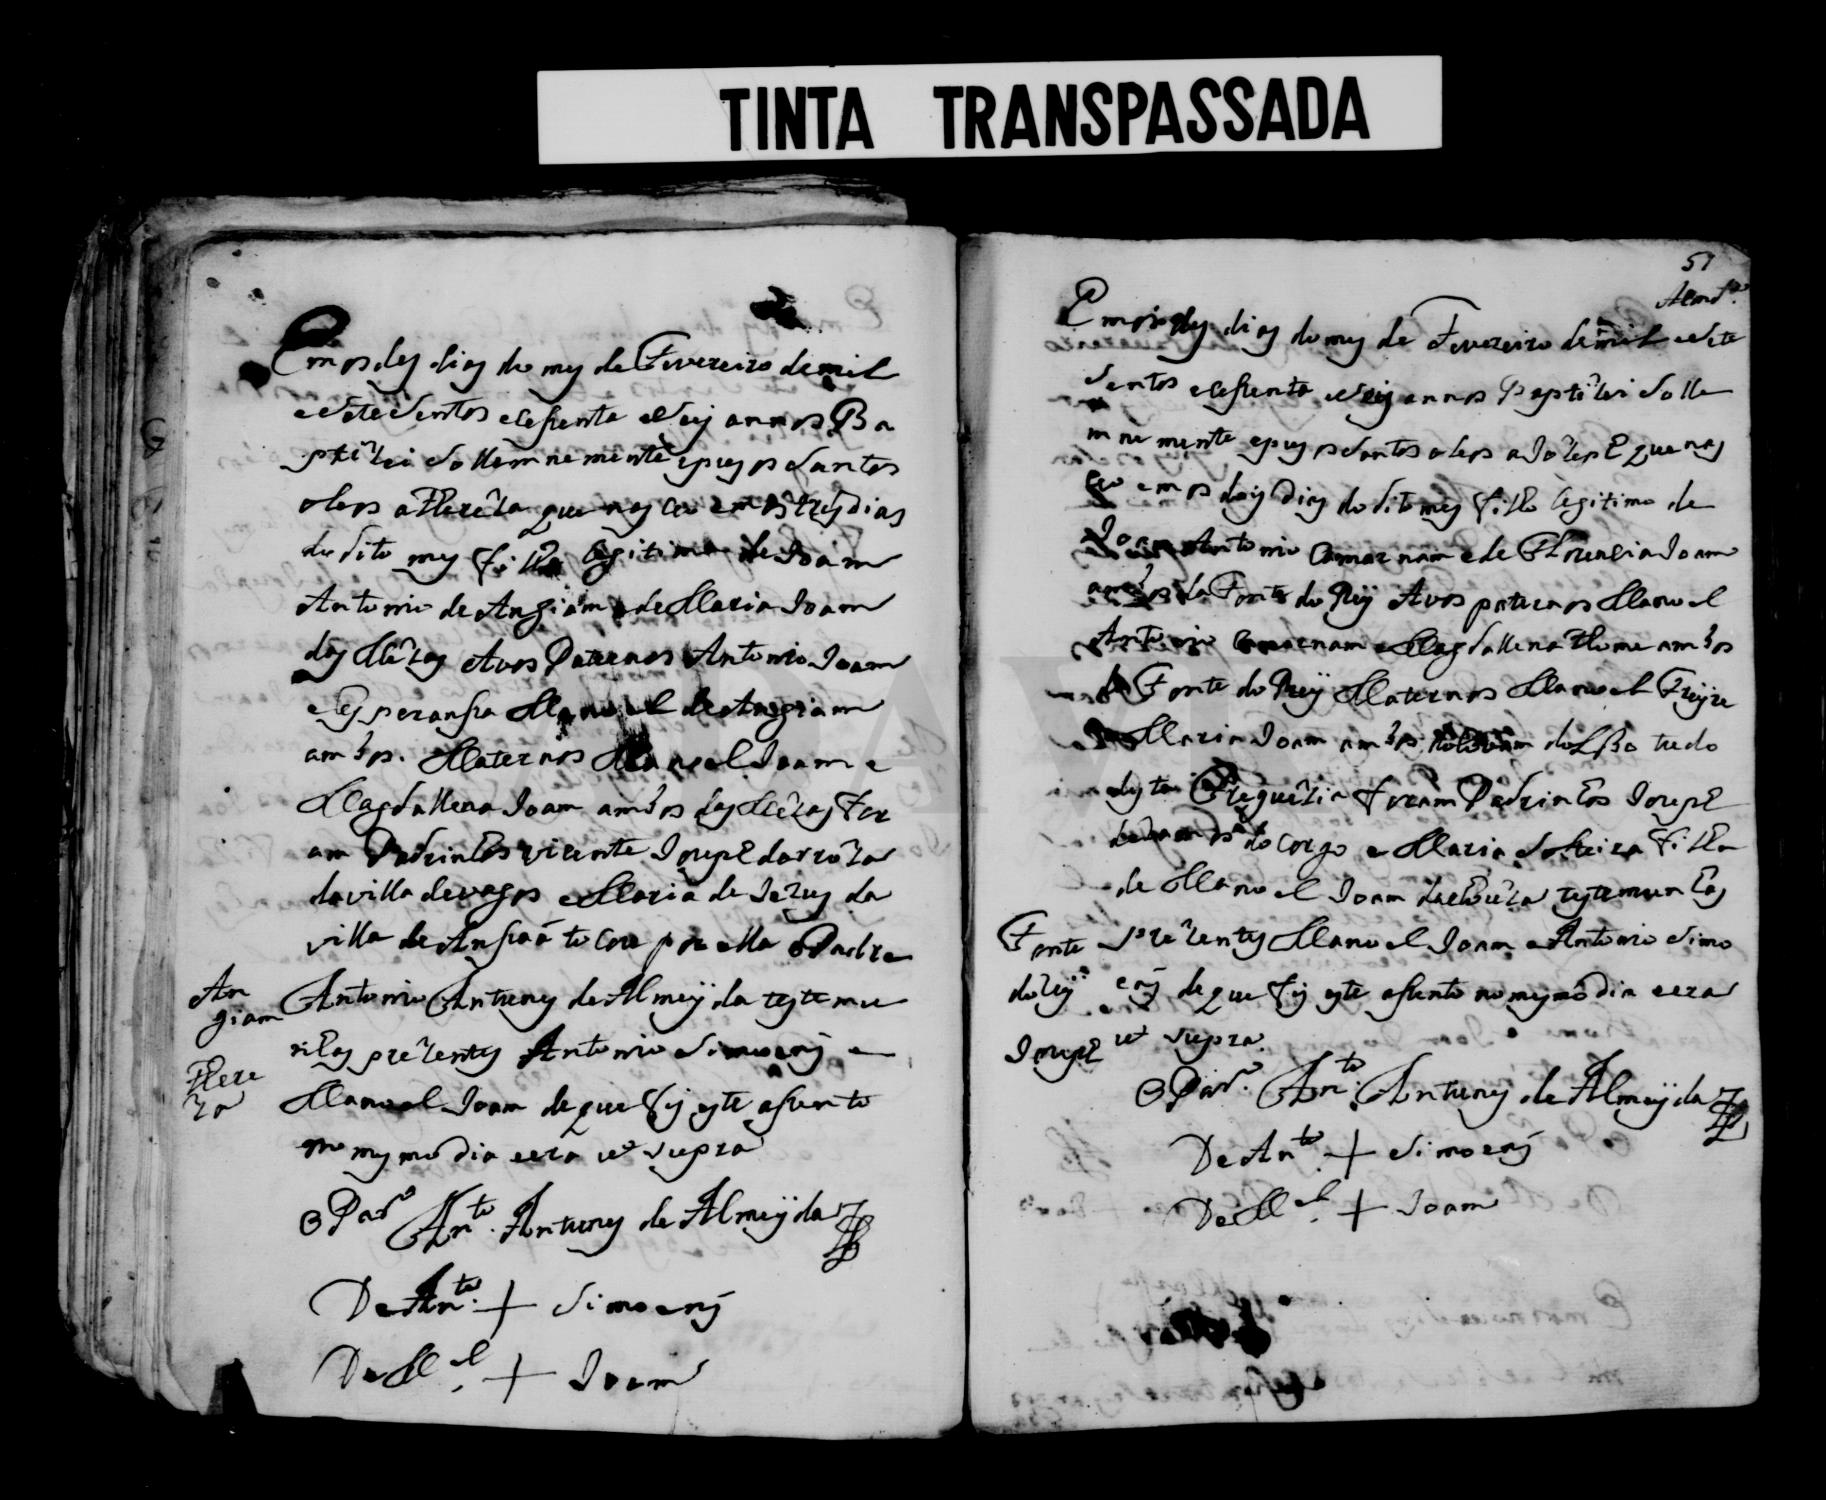 TINTA TRANSPASSADA
Em os des dias do mes de Fevereiro de mil
e setesentos e sesenta e seis annos Ba
ptizei sollemnemente e pus os santos
oleos a Thereza que nasceo em os tres dias
do dito mes filha legitima de Joam
Antonio de Angiam e de Maria Joam
das Mezas Avos Paternos Antonio Joam
e Esperansa Manoel de Angiam
ambos. Maternos Manoel Joam e
Magdallena Joam ambos das Mezas For
am Padrinhos vicente Joseph
da villa de vagos e Maria de Jezus da
villa de Ansaã tocou por ella o Padre
An
giam
Antonio Antunes de Almeÿda testemu
nhas prezentes Antonio Simoens e
There
za
Manoel Joam de que fis este asento
no mesmo dia e era ut supra
O Par.º An.to Antunes de Almeÿda
De An.to + Simoens
De M.el + Joam
51
Almd.ª
Em os des dias do mes de Fevereiro de mil e sete
sentos e sesenta e seis annos Baptizei solle
mnemente e pus os santos oleos a Joseph que nas
ceo em os dois dias do dito mes filho legitimo de
Joam Antonio Camarnam e de Florencia Joam
ambos da Fonte do Reÿ Avos paternos Manoel
Antonio Camarnam e Magdallena Thome ambos
da Fonte do Reÿ Maternos Manoel Freÿre
e Maria Joam ambos do tudo
desta Freguezia Foram Padrinhos Joseph
do Corgo e Maria solteira Filha
de Manoel Joam testemunhas
Fonte
do reÿ
Joseph
prezentes Manoel Joam e Antonio Simo
ens de que fis este asento no mesmo dia e era
ut supra
O Par.º An.to Antunes de Almeÿda
De An.to + Simoens
De M.el + Joam